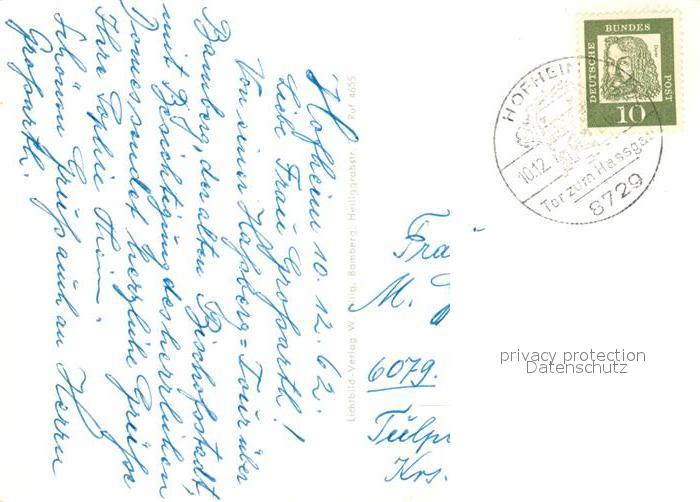 Hofheim 10.12.62.
Liebe Frau Großarth!
Von einer Haßberg=Tour über
Bamberg, der alten Bischofsstadt,
mit Besichtigung des herrlichen
Domes sendet herzliche Grüße
Ihre Sophie
Schönen Gruß auch an Herrn
Großarth.
Lichtbild-Verlag W. Bamberg, Heiliggrabstr. Ruf 4655
DEUTSCHE BUNDES POST
10
HOFHEIM
10.12
Tor zum Hassgau
8729
Frau
M. G
6079.
Krs.
privacy protection
Datenschutz